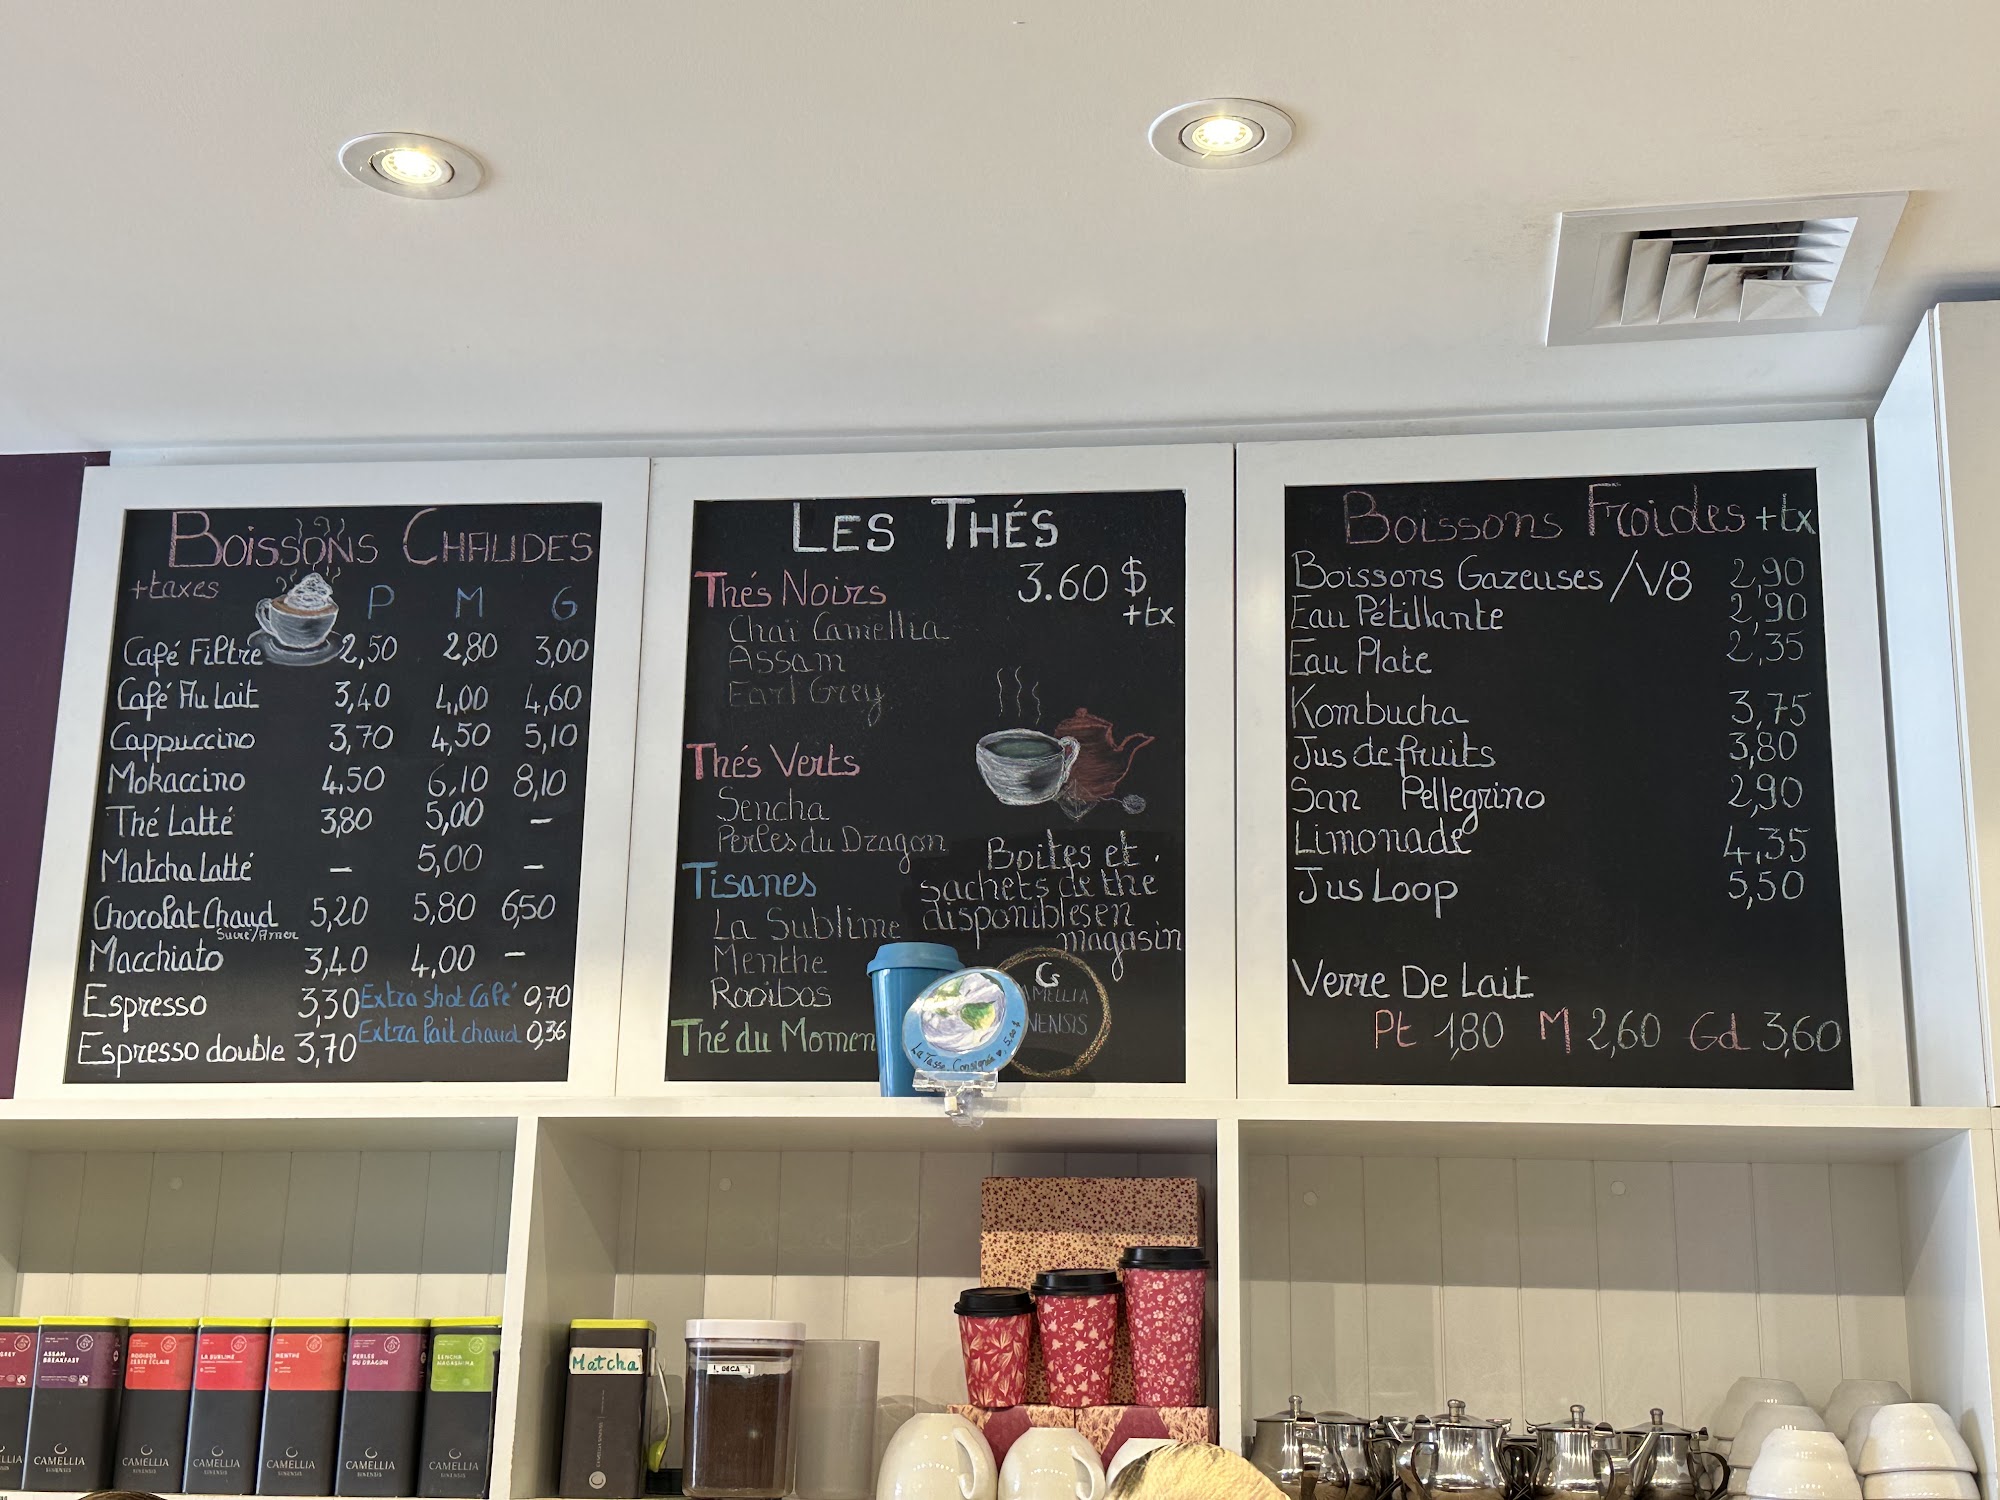 BOISSONS CHAUDES
+taxes
P M G
Café Filtre 2,50 2,80 3,00
Café Au Lait 3,40 4,00 4,60
Cappuccino 3,70 4,50 5,10
Mokaccino 4,50 6,10 8,10
Thé Latté 3,80 5,00 —
Matcha Latté — 5,00 —
Chocolat Chaud 5,20 5,80 6,50
Sucré/Amer
Macchiato 3,40 4,00 —
Espresso 3,30 Extra shot Café 0,70
Espresso double 3,70 Extra lait chaud 0,36
LES THÉS
Thés Noirs 3.60 $
+tx
Chaï Camellia
Assam
Earl Grey
Thés Verts
Sencha
Perles du Dragon
Tisanes
La Sublime
Menthe
Rooibos
Thé du Momen
Boites et
sachets de thé
disponibles en
magasin
CAMELLIA
NENSIS
La Tasse Consignée 5,00 $
Boissons Froides +tx
Boissons Gazeuses /V8 2,90
Eau Pétillante 2,90
Eau Plate 2,35
Kombucha 3,75
Jus de fruits 3,80
San Pellegrino 2,90
Limonade 4,35
Jus Loop 5,50
Verre De Lait
Pt 1,80 M 2,60 Gd 3,60
GREY
ASSAM
BREAKFAST
ROOIBOS
ZESTE ÉCLAIR
LA SUBLIME
MENTHE
PERLES
DU DRAGON
SENCHA
NAGASHIMA
CAMELLIA
SINENSIS
CAMELLIA
SINENSIS
CAMELLIA
SINENSIS
CAMELLIA
SINENSIS
CAMELLIA
SINENSIS
CAMELLIA
SINENSIS
Matcha
DECA